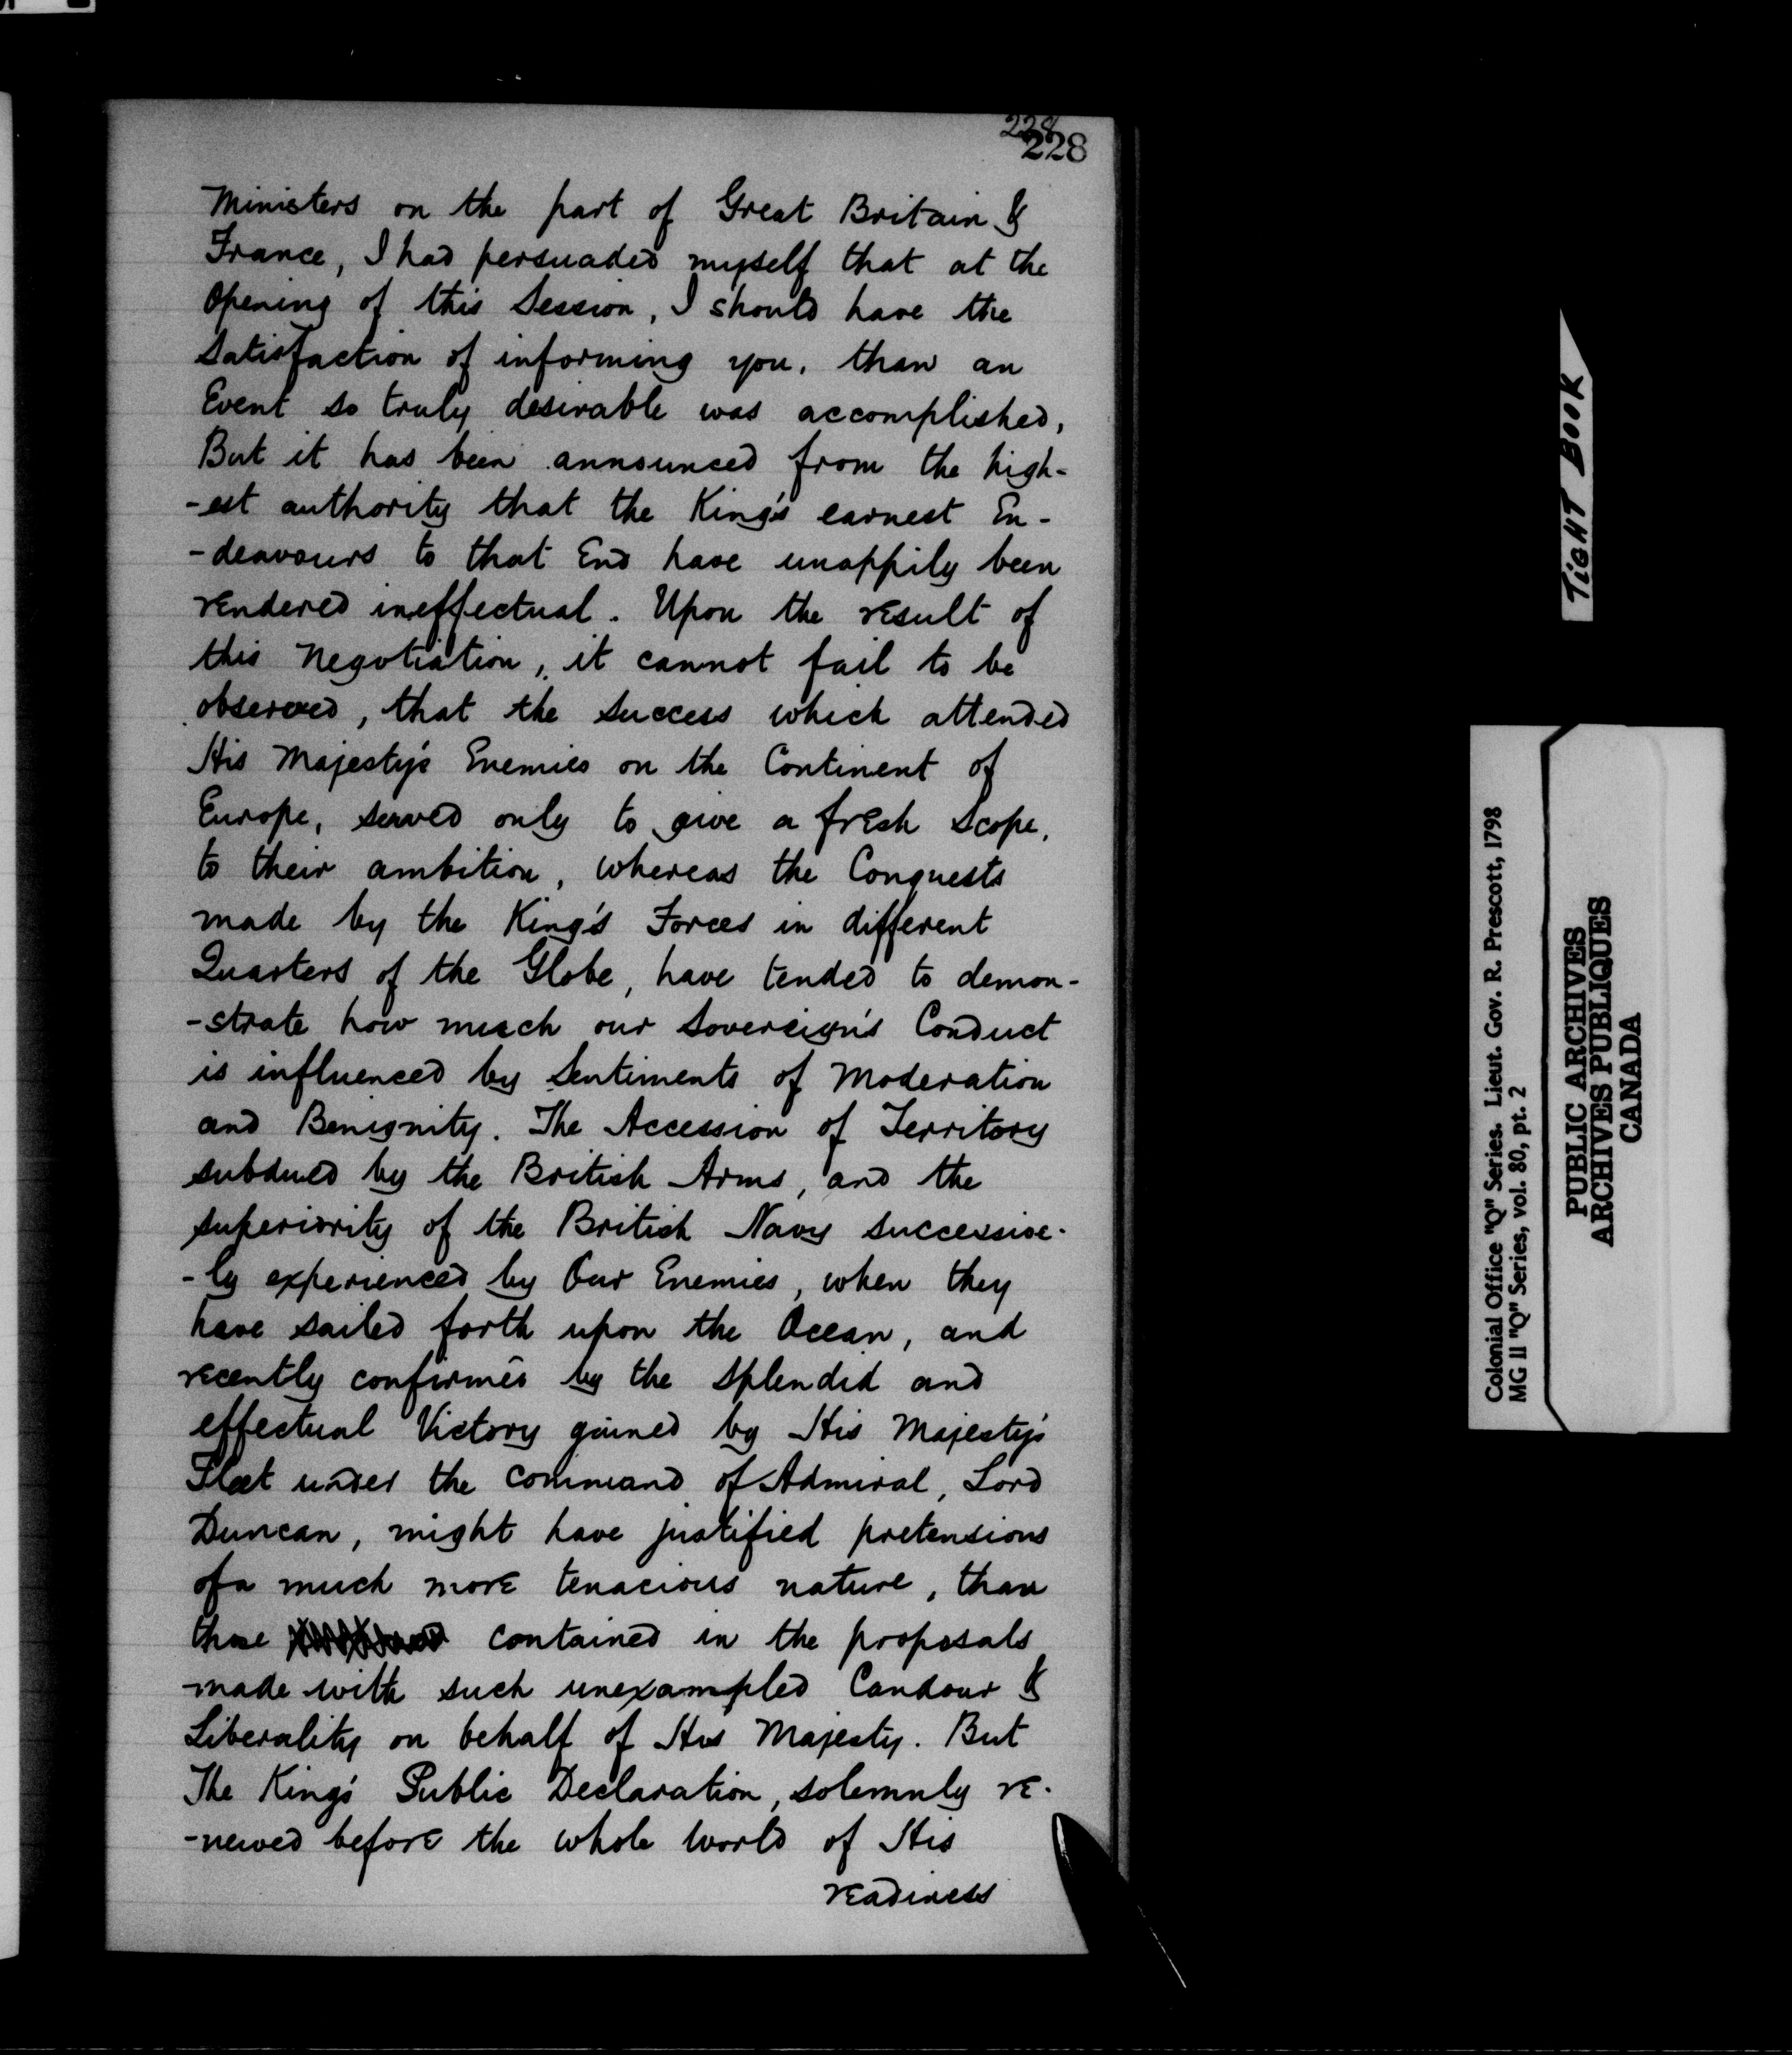 228
228
Ministers on the part of Great Britain &
France, I had persuaded myself that at the
Opening of this Session, I should have the
Satisfaction of informing you, than an
Event so truly desirable was accomplished,
But it has been announced from the high-
-est authority that the King's earnest En-
-deavours to that End have unappily been
rendered ineffectual. Upon the result of
this Negotiation, it cannot fail to be
observed, that the success which attended
His Majesty's Enemies on the Continent of
Europe, served only to give a fresh Scope,
to their ambition, whereas the Conquests
made by the King's Forces in different
Quarters of the Globe, have tended to demon-
-strate how much our Sovereign's Conduct
is influenced by Sentiments of Moderation
and Benignity. The Accession of Territory
subdued by the British Arms, and the
superiority of the British Navy successive-
-ly experienced by Our Enemies, when they
have sailed forth upon the Ocean, and
recently confirmed by the splendid and
effectual Victory gained by His Majesty's
Fleet under the command of Admiral, Lord
Duncan, might have justified pretensions
of a much more tenacious nature, than
those contained in the proposals
made with such unexampled Candour &
Liberality on behalf of His Majesty. But
The King's Public Declaration, solemnly re-
-newed before the whole World of His
readiness
TIGHT BOOK
Colonial Office "Q" Series. Lieut. Gov. R. Prescott, 1798
MG 11 "Q" Series, vol. 80, pt. 2
PUBLIC ARCHIVES
ARCHIVES PUBLIQUES
CANADA